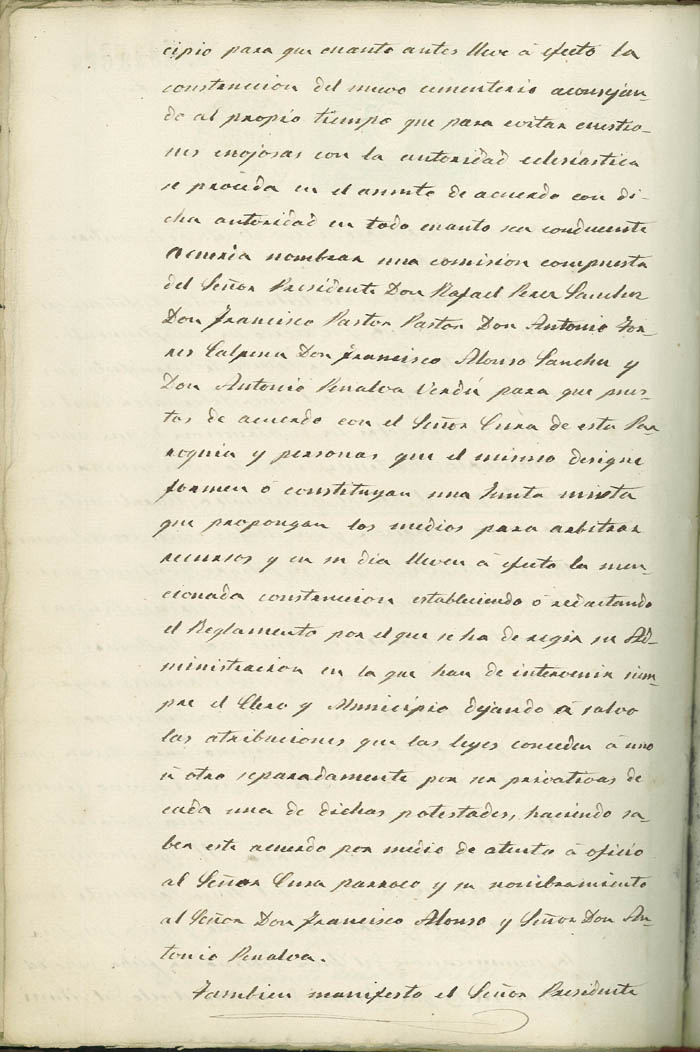 cipio para que cuanto antes lleve á efecto la
construccion del nuevo cementerio aconseján-
do al propio tiempo que para evitar cuestio-
nes enojosas con la autoridad eclesiástica
se proceda en el asunto de acuerdo con di-
cha autoridad en todo cuanto sea conducente
acuerda nombrar una comision compuesta
del Señor Presidente Don Rafael Perez Sanchez
Don Francisco Pastor Pastor Don Antonio Tor-
res Calpena Don Francisco Alonso Sanchez y
Don Antonio Penalva Verdú para que pues-
tos de acuerdo con el Señor Cura de esta Par
roquia y personas que el mismo designe
formen ó constituyan una Junta mista
que propongan los medios para arbitrar
recursos y en su dia lleven á efecto la men-
cionada construccion estableciendo ó redactando
el Reglamento por el que se ha de regir su Ad-
ministracion en la que han de intervenir siem-
pre el Clero y Municipio dejando á salvo
las atribuciones que las leyes conceden á uno
ú otro separadamente por ser privativas de
cada una de dichas potestades, haciendo sa-
ber este acuerdo por medio de atento á oficio
al Señor Cura parroco y su nombramiento
al Señor Don Francisco Alonso y Señor Don An-
tonio Penalva.
Tambien manifesto el Señor Presidente